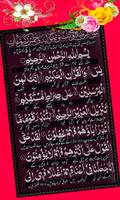 بِسْمِ اللهِ الرَّحْمٰنِ الرَّحِيْمِ
يٰسٓ وَالْقُرْاٰنِ الْحَكِيْمِ اِنَّكَ لَمِنَ
الْمُرْسَلِيْنَ عَلٰى صِرَاطٍ مُّسْتَقِيْمٍ
تَنْزِيْلَ الْعَزِيْزِ الرَّحِيْمِ لِتُنْذِرَ قَوْمًا مَّا
اُنْذِرَ اٰبَاؤُهُمْ فَهُمْ غٰفِلُوْنَ لَقَدْ حَقَّ
الْقَوْلُ عَلٰى اَكْثَرِهِمْ فَهُمْ لَا يُؤْمِنُوْنَ
اِنَّا جَعَلْنَا فِيْ اَعْنَاقِهِمْ اَغْلٰلًا فَهِيَ